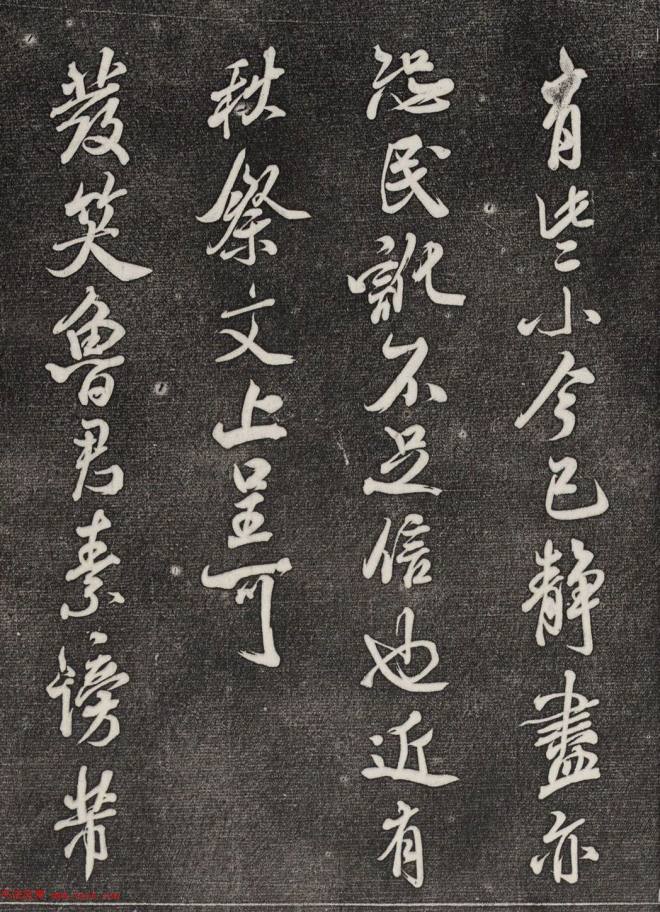 有些小今已靜盡亦
恐民訛不足信也近有
秋祭文上呈可
發笑魯君素謗芾